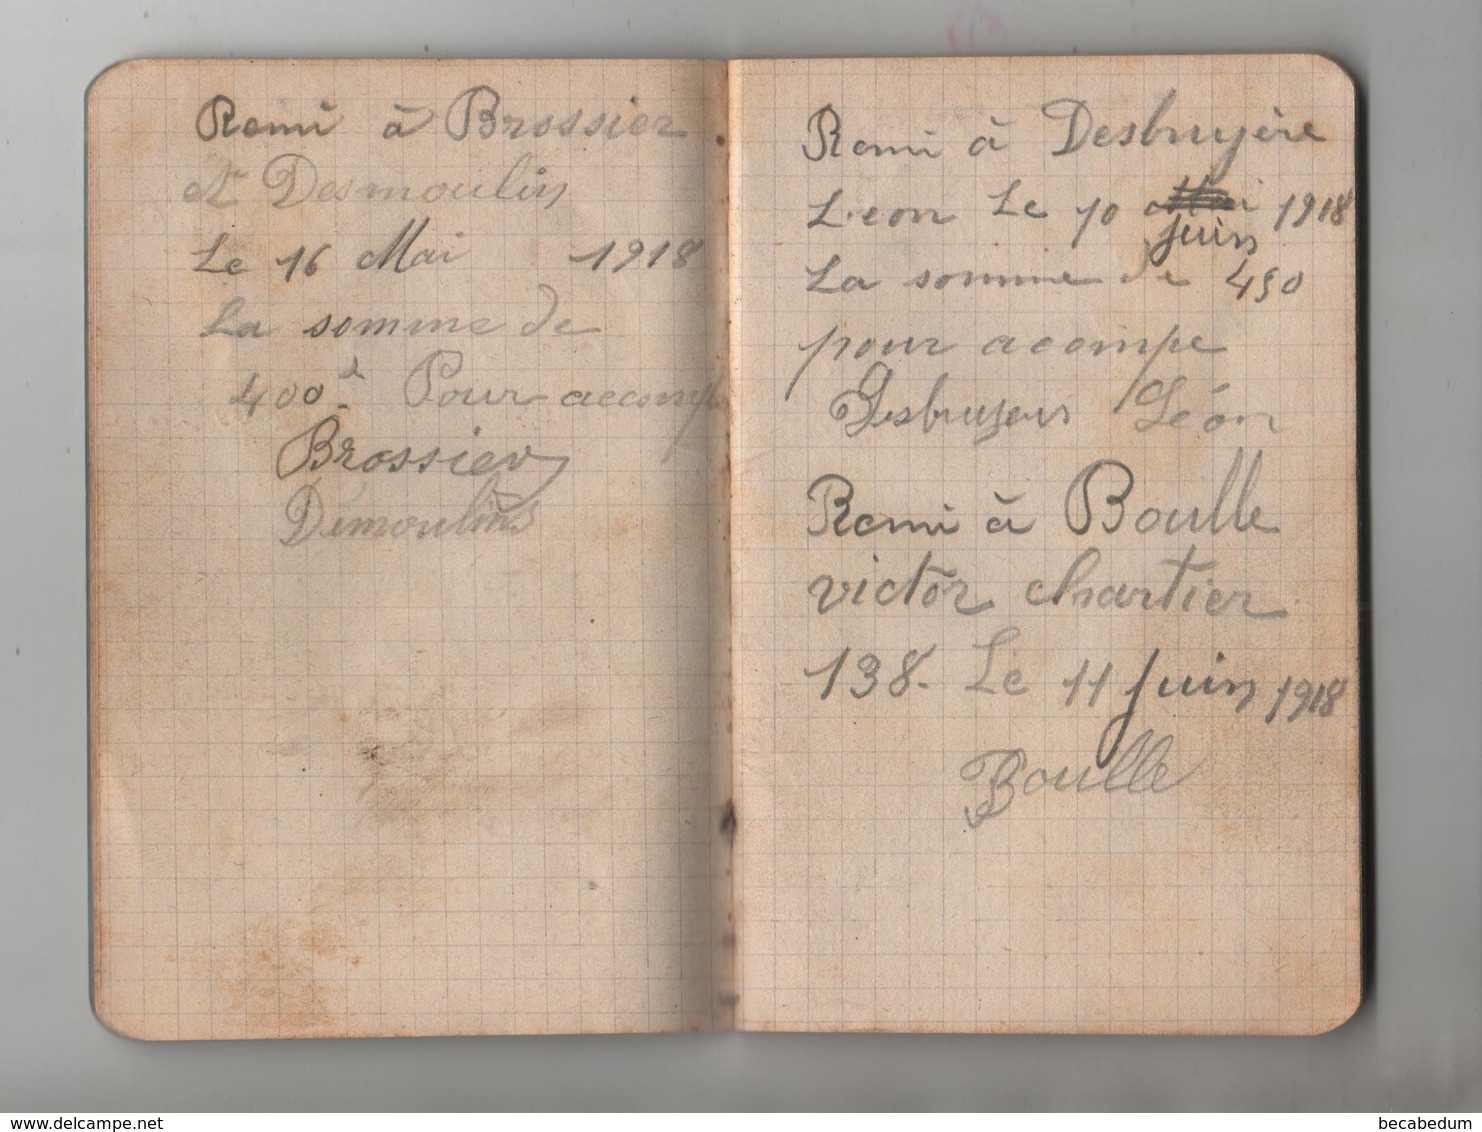 Remi à Brossier
et Desmoulin
Le 16 Mai 1918
La somme de
400 Pour acompt
Brossier
Dimoulins
Remi à Desbruyère
Léon Le 10 Mai 1918
juin
La somme de 450
pour acompe
Desbruyère Léon
Remi à Boulle
victor chartier
138. Le 11 juin 1918
Boulle
www.delcampe.net
becabedum